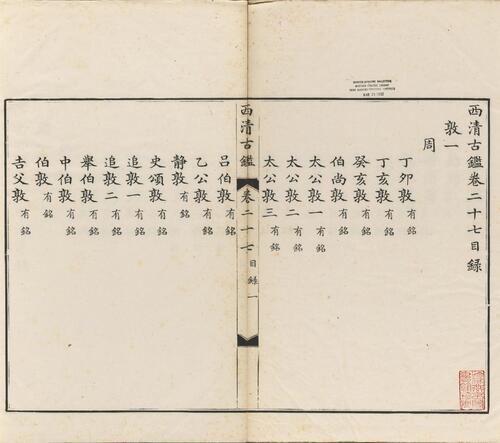 西清古鑑卷二十七目録
敦一
周
丁卯敦 有銘
丁亥敦 有銘
癸亥敦 有銘
伯尚敦 有銘
太公敦一 有銘
太公敦二 有銘
太公敦三 有銘
西清古鑑 卷二十七 目録 一
吕伯敦 有銘
乙公敦 有銘
靜敦 有銘
史頌敦 有銘
追敦一 有銘
追敦二 有銘
舉伯敦 有銘
中伯敦 有銘
伯敦 有銘
吉父敦 有銘